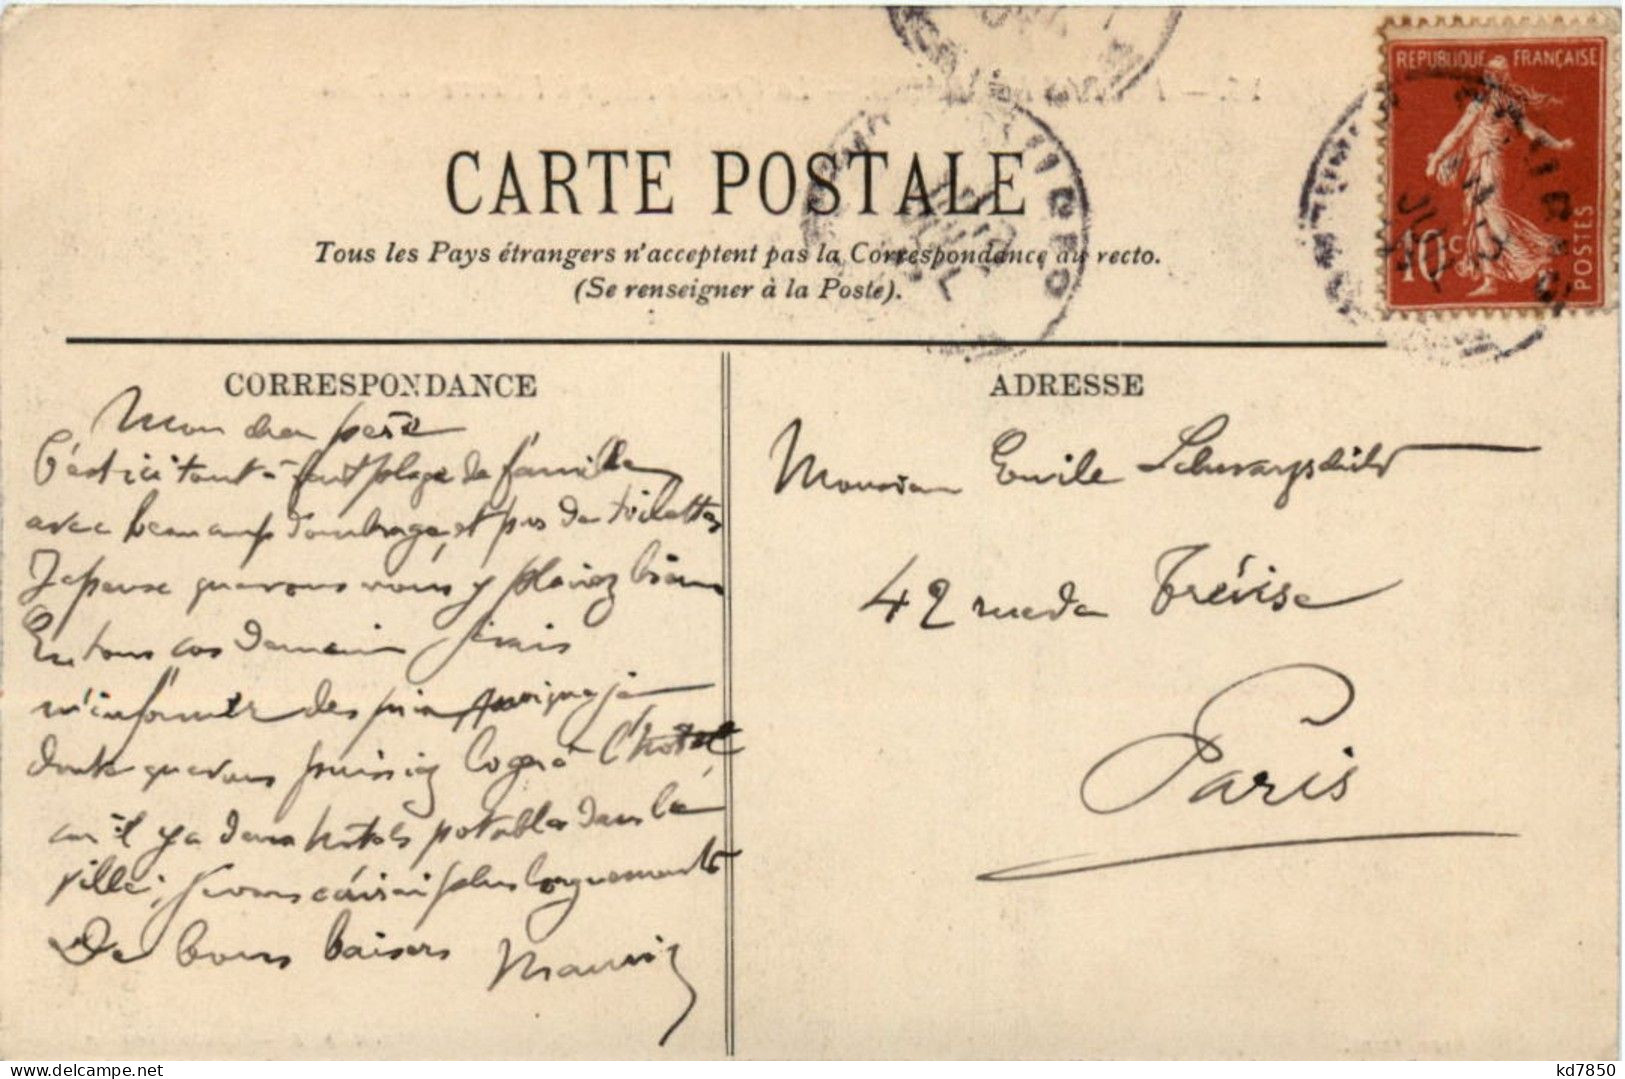 CARTE POSTALE
Tous les Pays étrangers n'acceptent pas la Correspondance au recto.
(Se renseigner à la Poste).
REPUBLIQUE FRANÇAISE
10c
POSTES
CORRESPONDANCE
Mon cher père
C'est ici tout à fait plage de famille
avec beaucoup d'ombrage, et pas de toilettes
Je pense que vous vous y plairez bien
En tous cas demain j'irais
m'informer des prix quoique je
doute que vous puissiez loger à l'hotel
car il y a deux hotels potables dans la
ville; Je vous écrirai plus longuement
De bons baisers Maurice
ADRESSE
Monsieur Emile Schwarzschild
42 rue de Trévise
Paris
kd7850